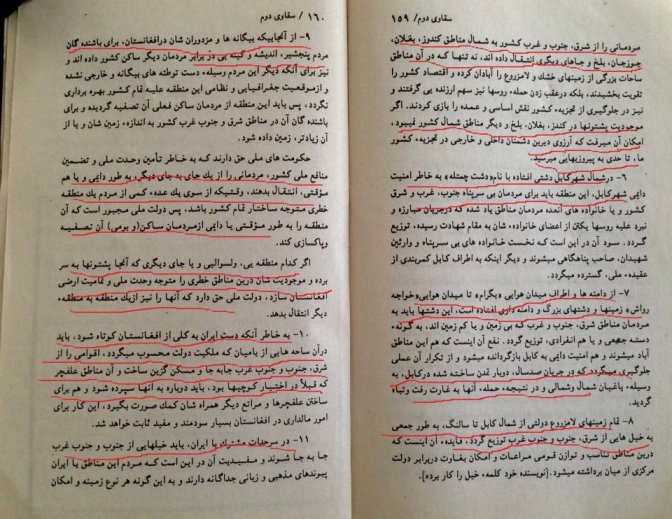 سقاوی دوم/ ۱۵۹
مردمانی را از شرق، جنوب و غرب کشور به شمال مناطق کندوز، بغلان،
جوزجان، بلخ و جاهای دیگری انتقال داده اند، نه تنها که در آن مناطق
ساحات بزرگی از زمینهای خشك و لامزروع را آبادان کرده و اقتصاد کشور را
تقویت بخشیدند، بلکه درعقب زدن حمله، روسها نیز سهم ارزنده یی گرفتند و
نیز در جلوگیری از تجزیه، کشور نقش اساسی و عمده را بازی کردند. اگر
موجودیت پشتونها در کندز، بغلان، بلخ و دیگر مناطق شمال کشور نمیبود،
امکان آن میرفت که آرزوی دیرین دشمنان داخلی و خارجی در تجزیه، کشور
ما، تا حدی به پیروزیهایی میرسید.
۶- درشمال شهرکابل دشتی افتاده با نام«دشت چمتله» به خاطر امنیت
دایمی شهرکابل، این منطقه باید برای مردمان بی سرپناه جنوب، غرب و شرق
کشور و یا خانواده های آنعده مردمان مناطق یاد شده که درجریان مبارزه و
نبرد علیه روسها یکی از اعضای خانواده، شان به مقام شهادت رسیده، توزیع
گردد. سود آن در این است که نخست خانواده های بی سرپناه و وارثین
شهیدان، صاحب پناهگاهی میشوند و دیگر اینکه به اطراف کابل کمربندی از
عقیده، ملی، گسترده میگردد.
۷- از دامنه ها و اطراف میدان هوایی «بگرام» تا میدان هوایی«خواجه
رواش» زمینها و دشتهای بزرگ و دامنه داری افتاده است، این دشتها باید به
مردمان مناطق شرق، جنوب و غرب که بی زمین و یا کم زمین اند، به گونه،
دسته جمعی و یا هم انفرادی، توزیع گردد. نفع آن اینست که هم این مناطق
آباد میشوند و هم امنیت دایمی به کابل بازگردانده میشود و از تکرار آن عملی
جلوگیری میگردد که در جریان صدسال، دوبار تمدن ساخته شده درکابل، به
وسیله، یاغیان شمال وشمالی و در نتیجه، حمله، آنها به غارت رفت وتباه
گردید.
۸ - تمام زمینهای لامزروع دولتی از شمال کابل تا سالنگ، به طور جمعی
به خیل هایی از شرق، جنوب و جنوب غرب توزیع گردد. فایده، آن اینست که
درین مناطق تناسب و توازن قومی مراعات و امکان بغاوت دربرابر دولت
مرکزی از میان برداشته میشود. [نویسنده خود کلمه، خیل را کار برده].
۱۶۰ / سقاوی دوم
۹- از آنجاییکه بیگانه ها و مزدوران شان درافغانستان، برای باشنده گان
مردم پنجشیر، اندیشه و کینه یی در برابر مردمان دیگر ساکن کشور داده اند و
نیز برای آنکه دیگر این مردم وسیله، دست توطئه های بیگانه و خارجی نشده
و ازموقعیت جغرافیایی و نظامی این منطقه علیه تمام کشور بهره برداری
نگردد، پس باید این منطقه از مردمان ساکن فعلی آن تصفیه گردیده و برای
باشنده گان آن در مناطق شرق و جنوب غرب کشور به اندازه، زمین شان و یا از
آن زیادتر، زمین داده شود.
حکومت های ملی حق دارند که به خاطر تأمین وحدت ملی و تضمین
منافع ملی کشور، مردمانی را از یك جای به جای دیگر، به طور دایمی و یا هم
مؤقتی، انتقال بدهند، وقتیکه از سوی یك عده، کمی از مردم یك منطقه
خطری متوجه ساختار تمام کشور باشد، پس دولت ملی مجبور است که آن
منطقه را به طور مؤقتی یا دایمی ازمردمان ساکن(و بومی) آن تصفیه و
پاکسازی کند.
اگر کدام منطقه یی، ولسوالیی و یا جای دیگری که آنجا پشتونها به سر
برده و موجودیت شان درین مناطق خطری را متوجه وحدت ملی و تمامیت ارضی
افغانستان سازد، دولت ملی حق دارد که آنها را نیز ازیك منطقه به منطقه،
دیگر انتقال بدهد.
۱۰- به خاطر آنکه دست ایران به کلی از افغانستان کوتاه شود، باید
درآن ساحه هایی از بامیان که ملکیت دولت محسوب میگردد، اقوامی را از
شرق، جنوب و جنوب غرب جابه جا و مسکن گزین ساخت و آن مناطق علفچر
که قبلاً در اختیار کوچیها بود، باید دوباره به آنها سپرده شود و هم برای
ساختن علفچرها و مراتع دیگر همراه شان کمك صورت بگیرد، این کار برای
امور مالداری در افغانستان بسیار سودمند و مفید ثابت خواهد شد.
۱۱- در سرحدات مشترك با ایران، باید خیلهایی از جنوب و جنوب غرب
جا به جا شوند و مفیدیت آن در این است که مردم این مناطق با ایران
پیوندهای مذهبی و زبانی جداگانه دارند و به این گونه هر نوع زمینه و امکان